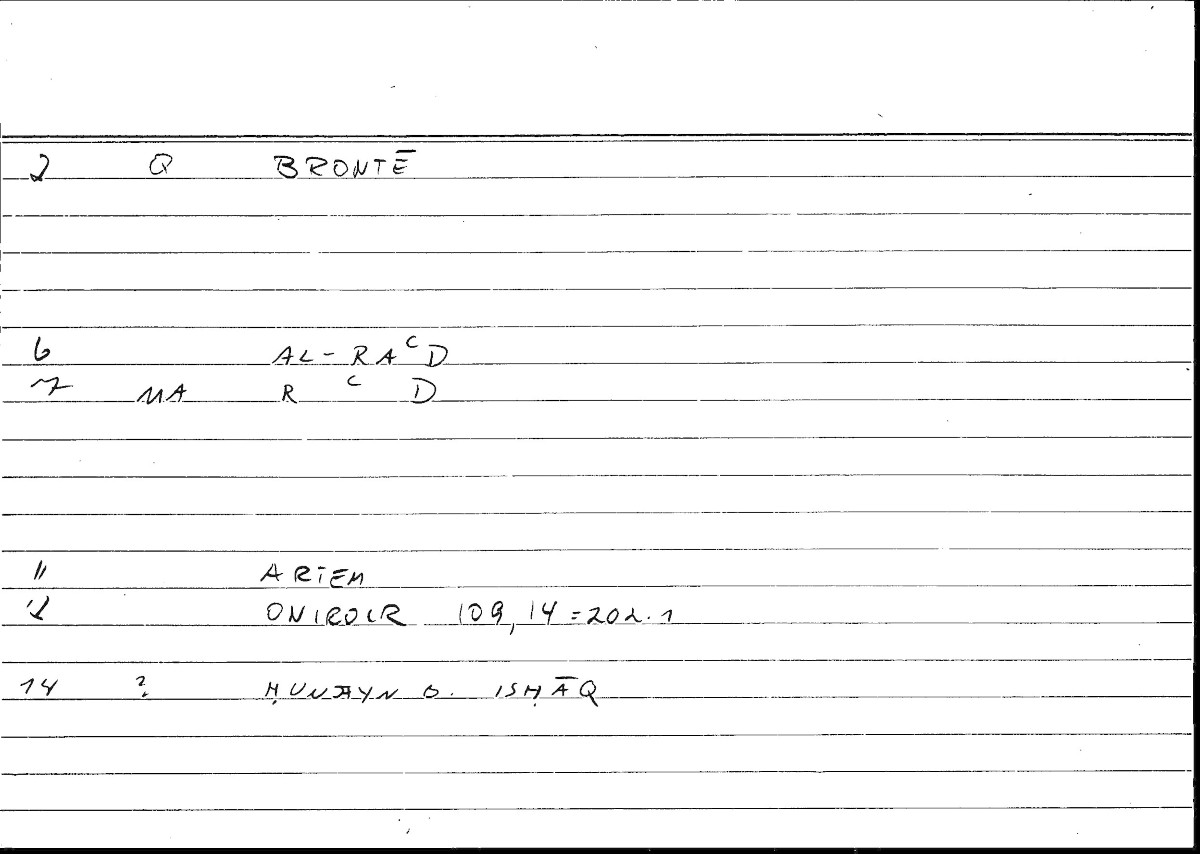 2 Q BRONTĒ
6 AL-RAᶜD
7 MA R ᶜ D
11 ARTEM
12 ONIROCR 109,14=202.1
14 ? ḤUNAYN B. ISḤĀQ